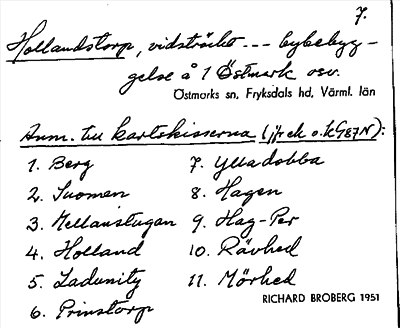 7.
Hollandstorp, vidsträckt --- bybebyg-
gelse å 1 Östmark osv.
Östmarks sn, Fryksdals hd, Värml. län
Anm. till kartskisserna (jfr ek o. k G87N):
1. Berg
2. Suomen
3. Mellanstugan
4. Holland
5. Ladunity
6. Prinstorp
7. Ylladobba
8. Hagen
9. Hag-Per
10. Rävhed
11. Mörhed
RICHARD BROBERG 1951